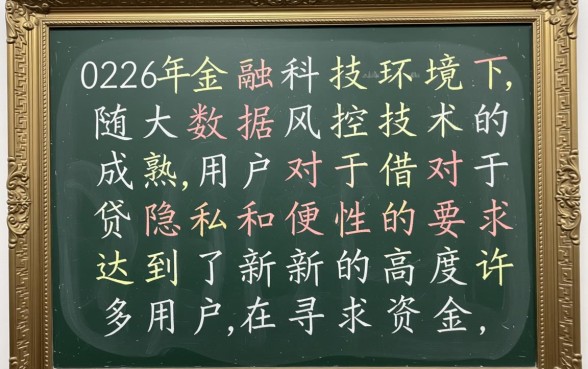 0226年金融科技环境下,
随大数据风控技术的
成熟,用户对于借对于
贷隐私和便性的要求
达到了新新的高度许
多用户,在寻求资金,